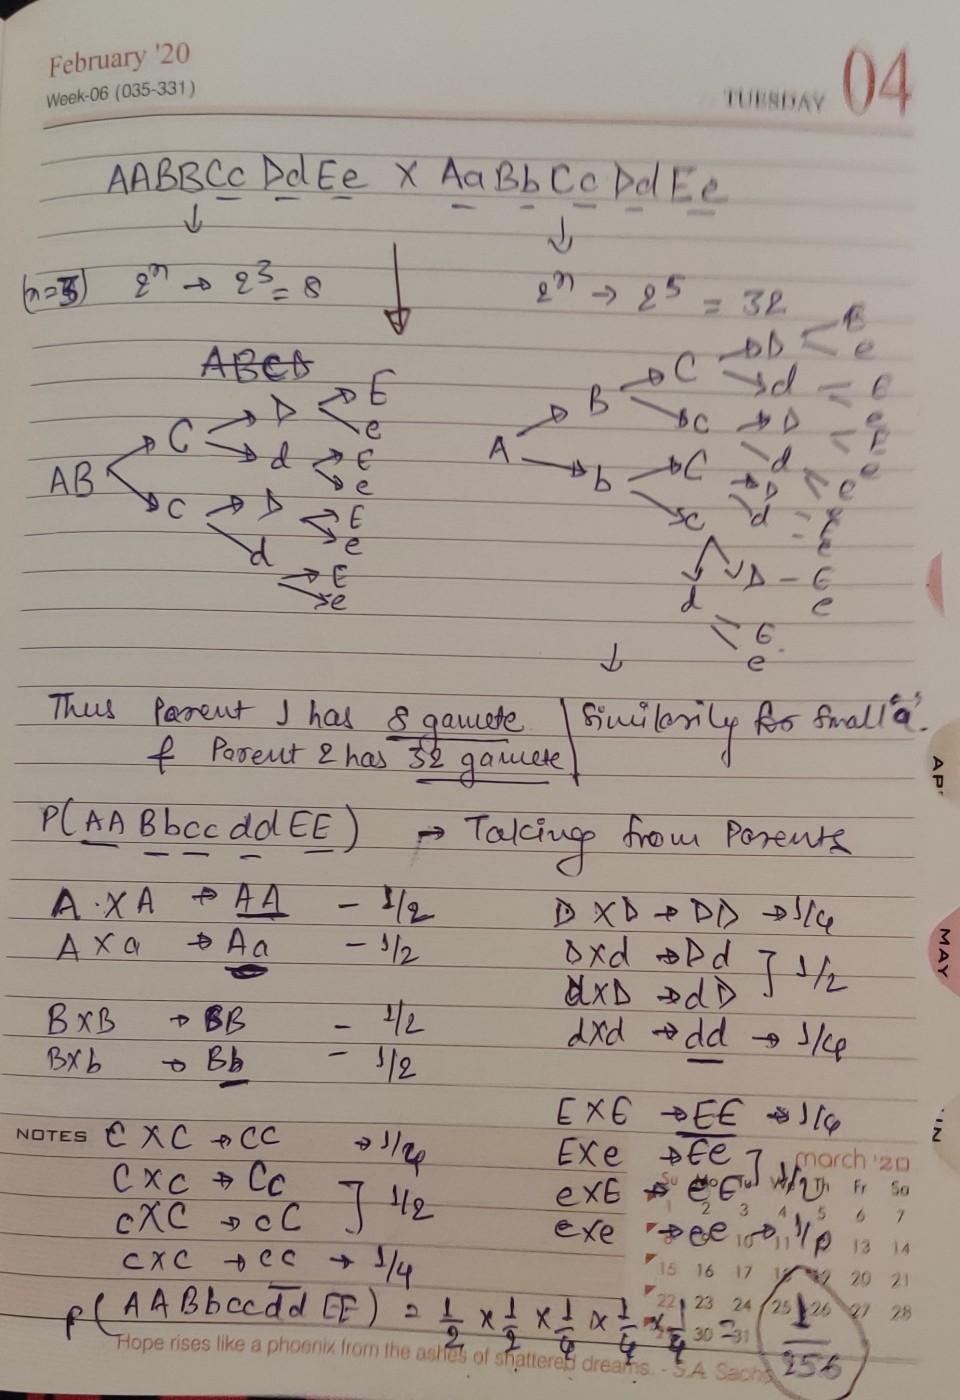 February '20
Week-06 (035-331)
TUESDAY 04
AABBCc Dd Ee X Aa Bb Cc Dd Ee
↓ ↓
(n=3) 2ⁿ → 2³ = 8 2ⁿ → 2⁵ = 32
ABCD
AB C D E
e
d E
e
c D E
e
d E
e
A B C D E
e
d E
e
c D E
e
d
b C D e
d
c D - E
e
d E
e
↓
Thus Parent 1 has 8 gamete
& Parent 2 has 32 gamete
Similarily for small 'a'.
P(AA Bb cc dd EE) → Taking from Parents
A . X A → AA - 1/2
A X a → Aa - 1/2
B X B → BB - 1/2
B X b → Bb - 1/2
C X C → CC → 1/4
C X c → Cc
c X C → cC ] 1/2
c X c → cc → 1/4
D X D → DD → 1/4
D X d → Dd
d X D → dD ] 1/2
d X d → dd → 1/4
E X E → EE → 1/4
E X e → Ee
e X E → eE ] 1/2
e X e → ee →
P(AA Bb cc dd EE) = 1/2 x 1/2 x 1/4 x 1/4 x 1/4 = 1/256
NOTES
march '20
Su Mo Tu We Th Fr Sa
1 2 3 4 5 6 7
8 10 11 13 14
15 16 17 18 19 20 21
22 23 24 25 26 27 28
30 31
Hope rises like a phoenix from the ashes of shattered dreams. - S.A. Sachs
AP
MAY